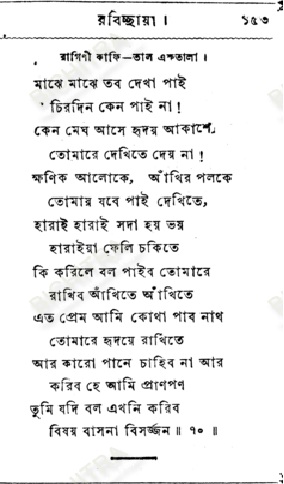 রবিচ্ছায়া। ১৫৩
রাগিণী কাফি—তাল একতালা।
মাঝে মাঝে তব দেখা পাই
চিরদিন কেন পাই না!
কেন মেঘ আসে হৃদয় আকাশে
তোমারে দেখিতে দেয় না!
ক্ষণিক আলোকে, আঁখির পলকে
তোমায় যবে পাই দেখিতে,
হারাই হারাই সদা হয় ভয়
হারাইয়া ফেলি চকিতে
কি করিলে বল পাইব তোমারে
রাখিব আঁখিতে আঁখিতে
এত প্রেম আমি কোথা পাব নাথ
তোমারে হৃদয়ে রাখিতে
আর কারো পানে চাহিব না আর
করিব হে আমি প্রাণপণ
তুমি যদি বল এখনি করিব
বিষয় বাসনা বিসর্জ্জন॥ ৭০॥